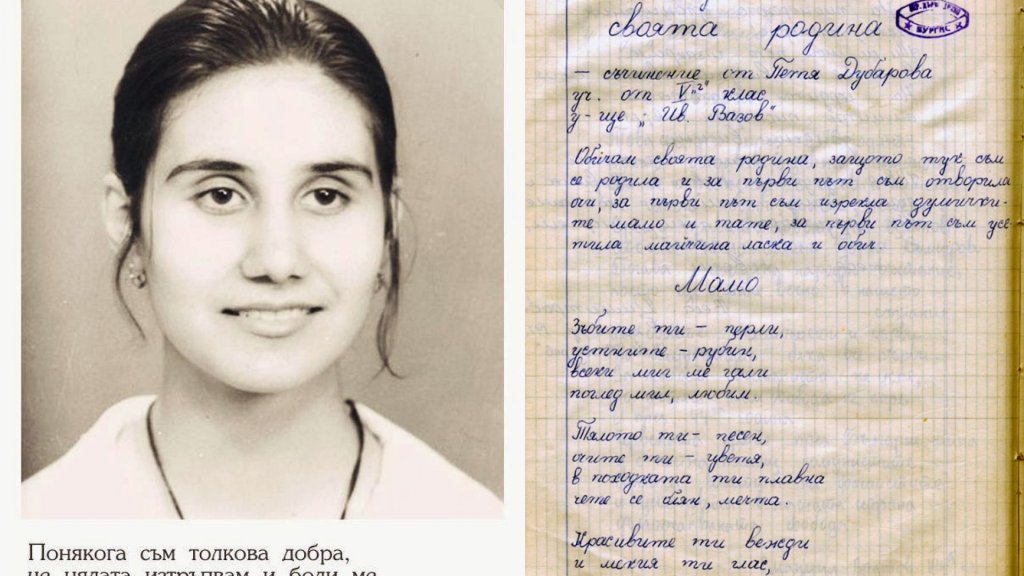 Понякога съм толкова добра,
че цялата изтръпвам и боли ме
БУРГАС
своята родина
– съчинение от Петя Дубарова
уч. от V клас
у-ще „Ив. Вазов“
Обичам своята родина, защото тук съм
се родила и за първи път съм отворила
очи, за първи път съм изрекла думички-
те мамо и тате, за първи път съм усе-
тила майчина ласка и обич.
Мамо
Зъбите ти – перли,
устните – рубин,
всеки миг ме гали
поглед мил, любим.
Тялото ти – песен,
очите ти – цветя,
в походката ти плавна
чете се блян, мечта.
Красивите ти вежди
и мекия ти глас,